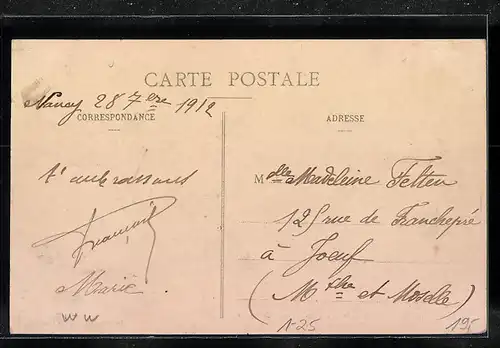 CARTE POSTALE
Nancy 28 7bre 1912
CORRESPONDANCE
ADRESSE
t'embrassant
Marie
Mdlle Madeleine Felten
125 rue de Franchepré
à Joeuf
(Mthe et Moselle)
1-25
195